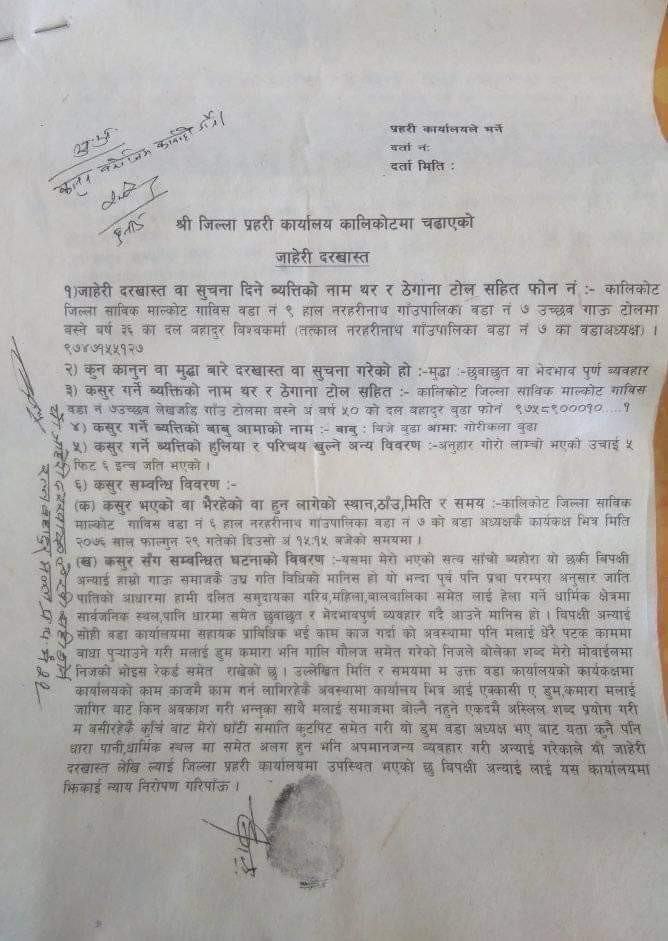 प्रहरी कार्यालयले भर्ने
दर्ता नं:
दर्ता मिति :
श्री जिल्ला प्रहरी कार्यालय कालिकोटमा चढाएको
जाहेरी दरखास्त
१)जाहेरी दरखास्त वा सुचना दिने ब्यत्तिको नाम थर र ठेगाना टोल सहित फोन नं :- कालिकोट
जिल्ला साविक माल्कोट गाविस वडा नं ९ हाल नरहरीनाथ गाँउपालिका वडा नं ७ उच्छव गाऊ टोलमा
बस्ने बर्ष ३६ का दल बहादुर विश्वकर्मा (तत्काल नरहरीनाथ गाँउपालिका वडा नं ७ का वडाअध्यक्ष) ।
९७४७१५५१२७
२) कुन कानुन वा मुद्धा बारे दरखास्त वा सुचना गरेको हो :-मुद्धा :-छुवाछुत वा भेदभाव पुर्ण ब्यवहार
३) कसुर गर्ने ब्यक्तिको नाम थर र ठेगाना टोल सहित :- कालिकोट जिल्ला साविक माल्कोट गाविस
वडा नं ७उच्छव लेखजाँड गाँउ टोलमा बस्ने अं बर्ष ५० को दल बहादुर बुढा फोनं ९७५८९०००१०.....१
४) कसुर गर्ने ब्यक्तिको बाबु आमाको नाम :- बाबु : विजे बुढा आमा: गोरीकला बुढा
५) कसुर गर्ने ब्यक्तिको हुलिया र परिचय खुल्ने अन्य विवरण :-अनुहार गोरो लाम्चो भएको उचाई ५
फिट ६ इन्च जति भएको ।
६) कसुर सम्वन्धि विवरण :-
(क) कसुर भएको वा भैरहेको वा हुन लागेको स्थान,ठाँउ,मिति र समय :-कालिकोट जिल्ला साविक
माल्कोट गाविस वडा नं ६ हाल नरहरीनाथ गाँउपालिका वडा नं ७ को वडा अध्यक्षकै कार्यकक्ष भित्र मिति
२०७६ साल फाल्गुन २९ गतेको दिउसो अं १५:१५ बजेको समयमा ।
(ख) कसुर सँग सम्वन्धित घटनाको विवरण :-यसमा मेरो भएको सत्य साँचो ब्यहोरा यो छकी बिपक्षी
अन्याई हाम्रो गाऊ समाजकै उग्र गति विधिको मानिस हो यो भन्दा पुर्व पनि प्रथा परम्परा अनुसार जाति
पातिको आधारमा हामी दलित समुदायका गरिव,महिला,बालवालिका समेत लाई हेला गर्ने धार्मिक क्षेत्रमा
सार्वजनिक स्थल,पानि धारमा समेत छुवाछुत र भेदभावपुर्ण ब्यवहार गर्दै आउने मानिस हो । बिपक्षी अन्याई
सोही वडा कार्यालयमा सहायक प्राविधिक भई काम काज गर्दा को अवस्थामा पनि मलाई धेरै पटक काममा
बाधा पुर्‍याउने गरी मलाई डुम कमारा भनि गालि गौलज समेत गरेको निजले वोलेका शब्द मेरो मोवाईलमा
निजको भोइस रेकर्ड समेत राखेको छु । उल्लेखित मिति र समयमा म उक्त वडा कार्यालयको कार्यकक्षमा
कार्यालयको काम काजमै काम गर्न लागिरहेकै अवस्थामा कार्यालय भित्र आई एक्कासी ए डुम,कमारा मलाई
जागिर बाट किन अवकाश गरी भन्नुका साथै मलाई समाजमा बोल्नै नहुने एकदमै अस्लिल शब्द प्रयोग गरी
म बसीरहेकै कुर्चि बाट मेरो घाँटी समाति कुटपिट समेत गरी यो डुम वडा अध्यक्ष भए बाट यता कुनै पनि
धारा पानी,धार्मिक स्थल मा समेत अलग हुन भनि अपमानजन्य ब्यवहार गरी अन्याई गरेकाले यो जाहेरी
दरखास्त लेखि ल्याई जिल्ला प्रहरी कार्यालयमा उपस्थित भएको छु बिपक्षी अन्याई लाई यस कार्यालयमा
झिकाई न्याय निरोपण गरिपाँऊ ।